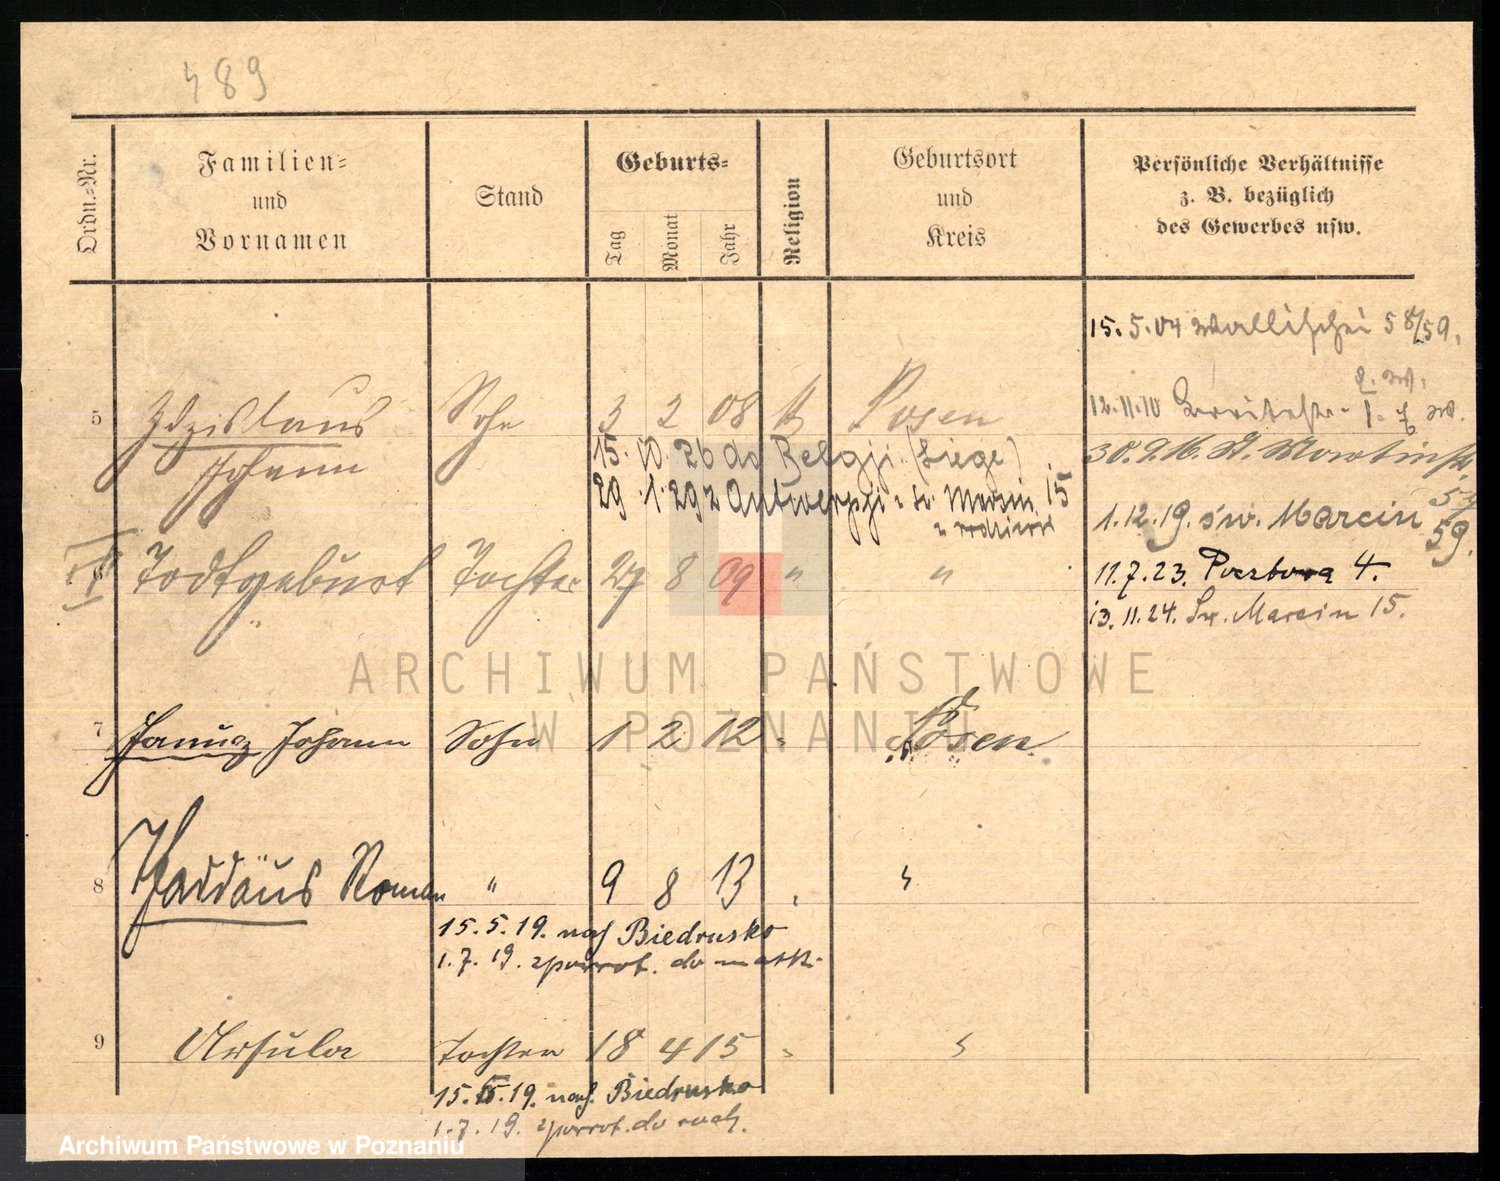 489
Ordn.=Nr.
Familien=
und
Vornamen
Stand
Geburts=
Tag
Monat
Jahr
Religion
Geburtsort
und
Kreis
Persönliche Verhältnisse
z. B. bezüglich
des Gewerbes usw.
15.5.04 Wallischei 58/59.
12.11.10
5 Zdzislaus Sohn 3 2 08 K Posen
Johann
15.10.26 do Belgji (Liege)
29.1.29 z Antwerpji Św. Marcin 15
30.9.16. St. Martinstr.
1.12.19. św. Marcin 59.
6 Todtgeburt Tochter 27 8 09 " "
11.7.23. Pocztowa 4.
13.11.24. Św. Marcin 15.
7 Janusz Johann Sohn 1 2 12 " Posen
8 Thaddäus Roman " 9 8 13 "
15.5.19. nach Biedrusko
1.7.19. zpowrot. do matk.
9 Ursula Tochter 18 4 15 "
15.5.19. nach Biedrusko
1.7.19. zpowrot. do
ARCHIWUM PAŃSTWOWE
W POZNANIU
Archiwum Państwowe w Poznaniu